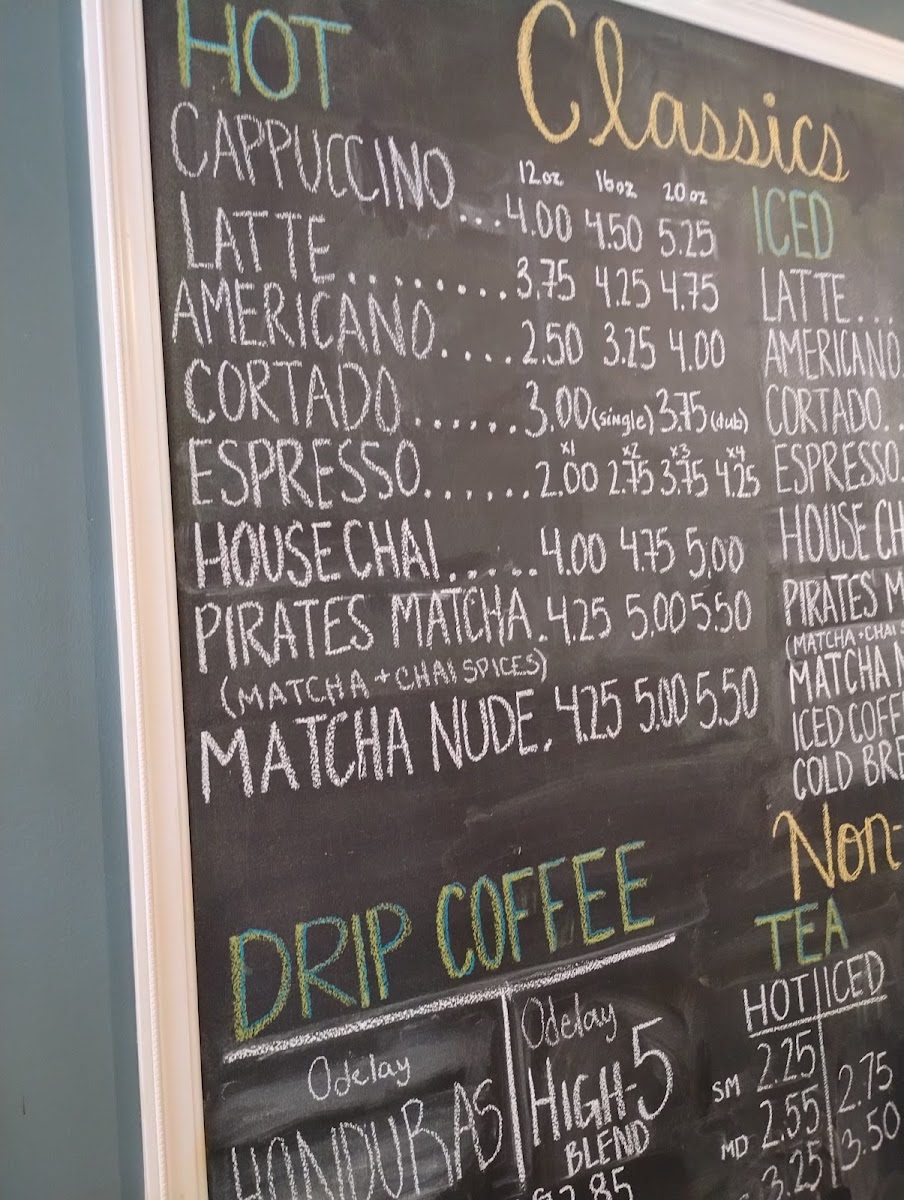 HOT
Classics
12oz 16oz 20oz
CAPPUCCINO...4.00 4.50 5.25
LATTE.........3.75 4.25 4.75
AMERICANO....2.50 3.25 4.00
CORTADO......3.00(single) 3.75(dub)
x1 x2 x3 x4
ESPRESSO......2.00 2.75 3.75 4.25
HOUSE CHAI.....4.00 4.75 5.00
PIRATES MATCHA.4.25 5.00 5.50
(MATCHA + CHAI SPICES)
MATCHA NUDE.4.25 5.00 5.50
ICED
LATTE...
AMERICANO.
CORTADO..
ESPRESSO.
HOUSE CH
PIRATES M
(MATCHA + CHAI S
MATCHA N
ICED COFF
COLD BRE
DRIP COFFEE
Odelay
HONDURAS
Odelay
HIGH-5
BLEND
2.85
Non-
TEA
HOT ICED
SM 2.25 2.75
MD 2.55 3.50
3.25